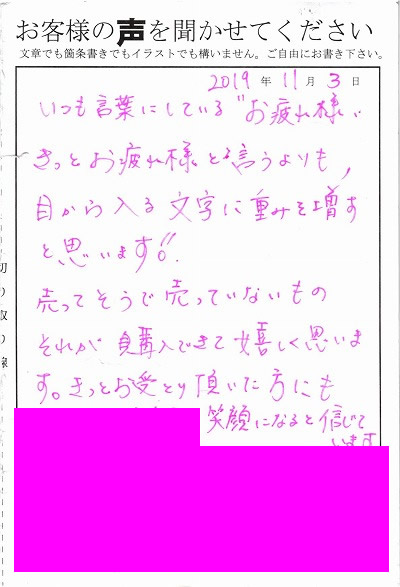 お客様の声を聞かせてください
文章でも箇条書きでもイラストでも構いません。ご自由にお書き下さい。
2019年11月3日
いつも言葉にしている"お疲れ様"
きっとお疲れ様と言うよりも、
目から入る文字に重みを増す
と思います。
売ってそうで売っていないもの
それが購入できて嬉しく思いま
す。きっとお受とり頂いた方にも
笑顔になると信じて
います
切り取り線